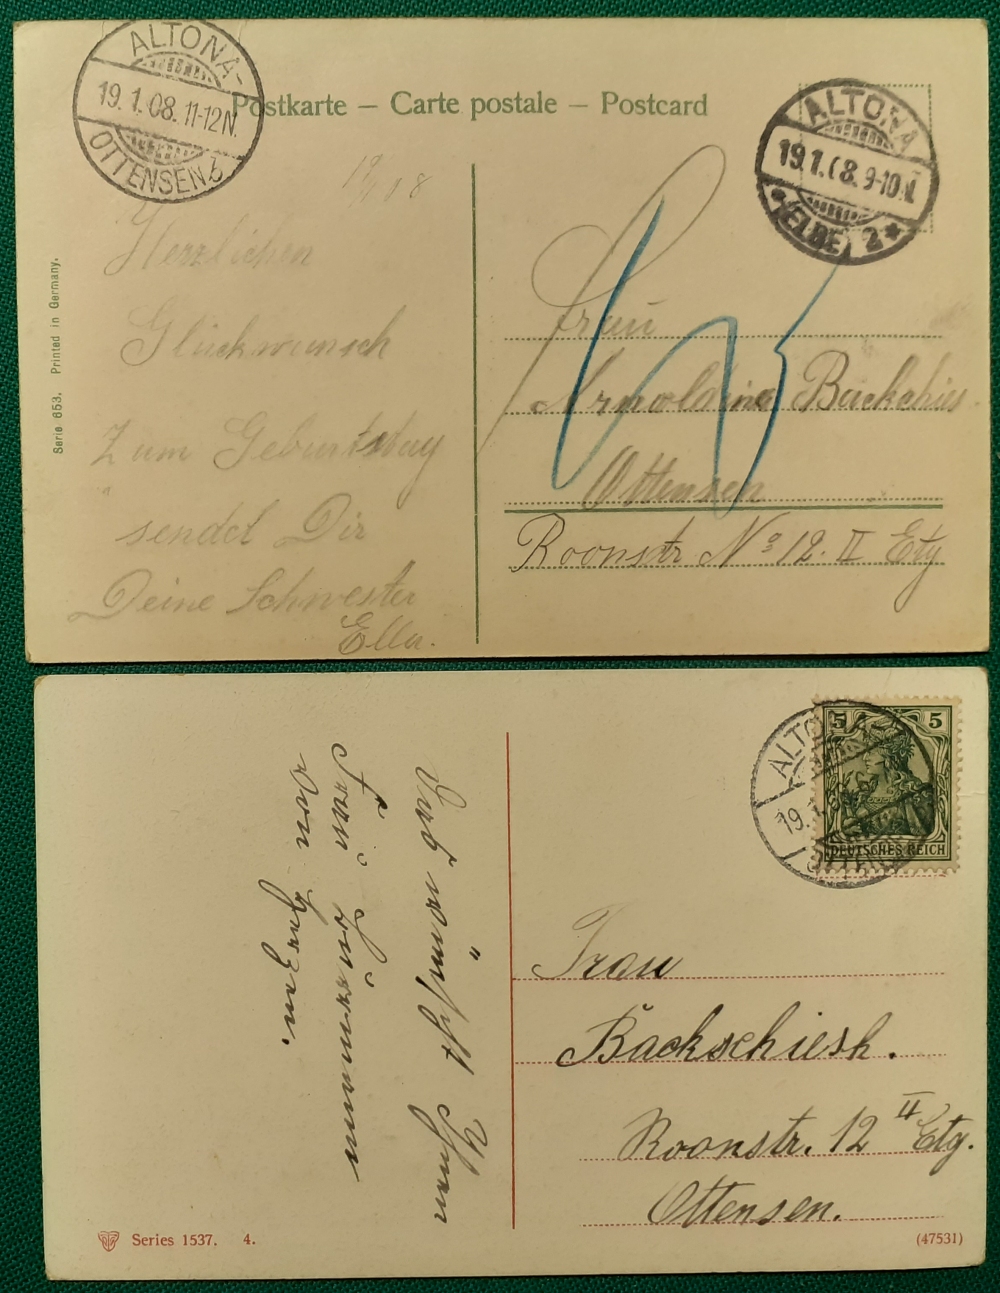 ALTONA-
19.1.08. 11-12N.
OTTENSEN
Postkarte – Carte postale – Postcard
ALTONA
19.1.08. 9-10.N.
(ELBE) 2 *
Serie 653. Printed in Germany.
19/1 08
Herzlichen
Glückwunsch
Zum Geburtstag
sendet Dir
Deine Schwester
Ella.
Frau
Arnoldine
Ottensen
Roonstr No 12. II Etg
ALTONA-
19.1.
OTTENSEN
5 5
DEUTSCHES REICH
Das wünscht Ihnen
Frau
von Herzen.
Frau
Backschiesh.
Roonstr. 12 II Etg.
Ottensen.
Series 1537. 4.
(47531)